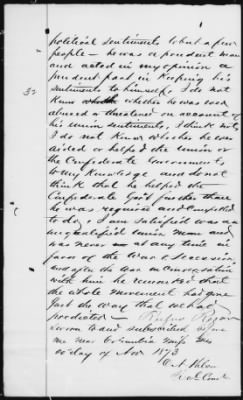 political sentiments to but a few
people – he was a prudent man
and acted in my opinion a
prudent part in keeping his
sentiments to himself, I do not
32 Know whether he was ever
abused or threatened on account of
his union sentiments, I think not
I do not Know whether he ever
aided or helped the union or
the Confederate Governments
to my Knowledge and do not
think that he helped the
Confederate Govt further than
he was required and compelled
to do, I am satisfied he was an
unqualified union man and
was never at any time in
favor of the war & secession
and after the war in conversation
with him he remarked that
the whole movement has gone
Just the way that we had
predicted – Rufus
Sworn to and subscribed before
me near Columbia
day of Nov 1873